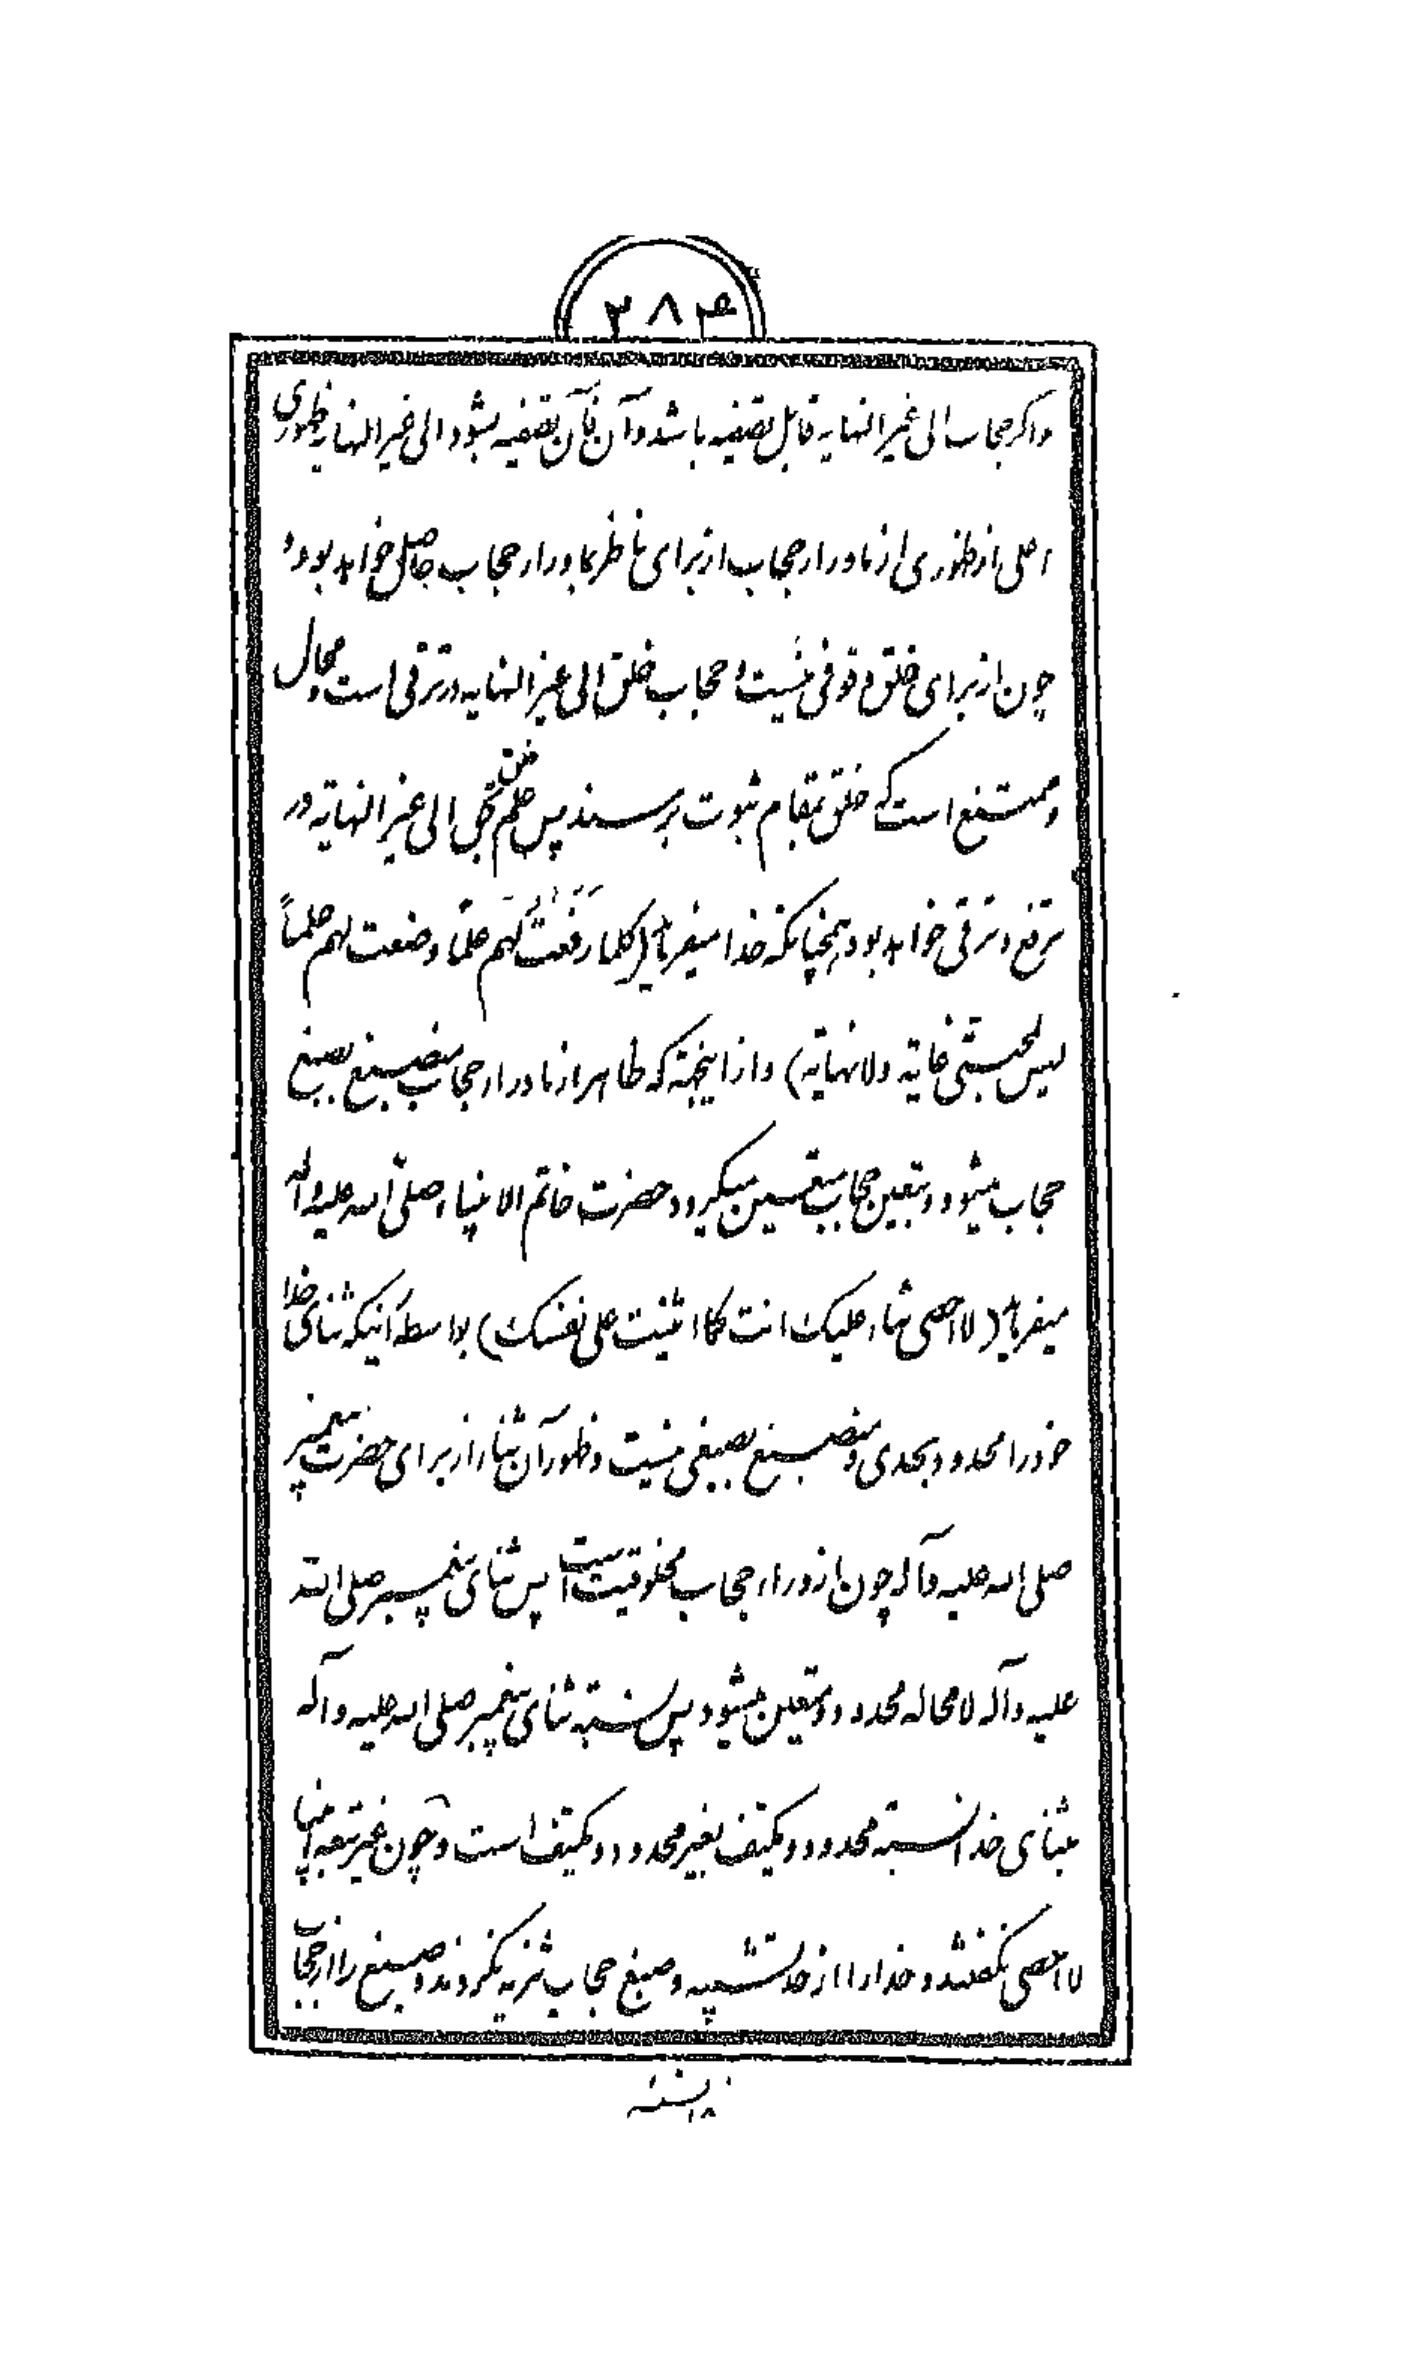 ۳۸۴
و اکر حجاب الی غیر النهایه قابل تصفیه باشد و آن فآن تصفیه بشود الی غیر النهایه ظهوری
اعلی از ظهوری از ماوراء حجاب از برای ناظر بماوراء حجاب حاصل خواهد بود و
چون از برای خلق وقوفی نیست و حجاب خلق الی غیر النهایه در ترقی است و محال
و ممتنع است که خلق بمقام ثبوت برسند پس علم خلق الی غیر النهایه در
ترفع و ترقی خواهد بود همچنانکه خدا میفرماید (کلما رَفَعْتُ لَهُم علماً وضعت لهم علماً
لیس لمحبتی غایة ولا نهایة) و از اینجهة که ظاهر از ماوراء حجاب منصبغ بصبغ
حجاب میشود و بتعین حجاب متعین میکرود حضرت خاتم الانبیاء صلی الله علیه و اله
میفرماید (لا احصی ثناء علیک انت کما اثنیت علی نفسک) بواسطه اینکه ثنای خدا
خود را محدود بحدی و منصبغ بصبغی نیست و ظهور آن ثناء از برای حضرت پیغمبر
صلی الله علیه و آله چون از وراء حجاب مخلوقیت است پس ثنای پیغمبر صلی الله
علیه و آله لا محاله محدود و متعین میشود پس نسبة ثنای پیغمبر صلی الله علیه و آله
بثنای خدا نسبة محدود و مکیف بغیر محدود و مکیف است و چون غیر تبعه انبیا
لا احصی نکفتند و خدا را از حد تشبیه و صبغ حجاب تنزیه نکردند و صبغ را از حجاب